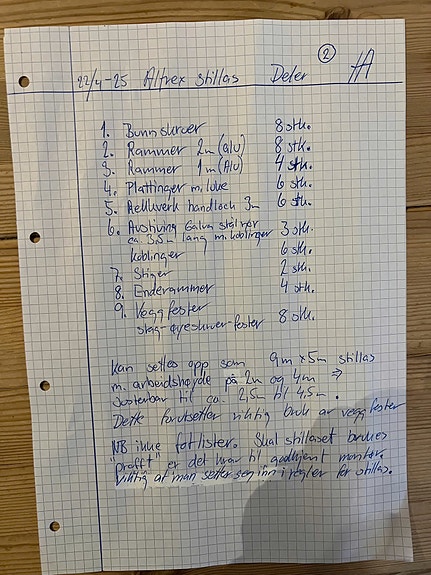 ②
22/4-25 Altrex stillas Deler HA
1. Bunnskruer 8 stk.
2. Rammer 2m (alu) 8 stk.
3. Rammer 1m (Alu) 4 stk.
4. Plattinger m. luke 6 stk.
5. Rekkverk handloch 3m 6 stk.
6. Avstiving Galv. stålrør 3 stk.
ca. 3,5m lang m. koblinger
koblinger 6 stk.
7. Stiger 2 stk.
8. Enderammer 4 stk.
9. Veggfester
stag-øyeskruer fester 8 stk.
Kan settes opp som 9m x 5m stillas
m. arbeidshøyde på 2m og 4m ⇒
Justerbar til ca. 2,5m til 4,5m.
Dette forutsetter riktig bruk av veggfester
NB ikke fotlister. Skal stillaset brukes
"proft" er det krav til godkjent montør.
Viktig at man setter seg inn i regler for stillas.